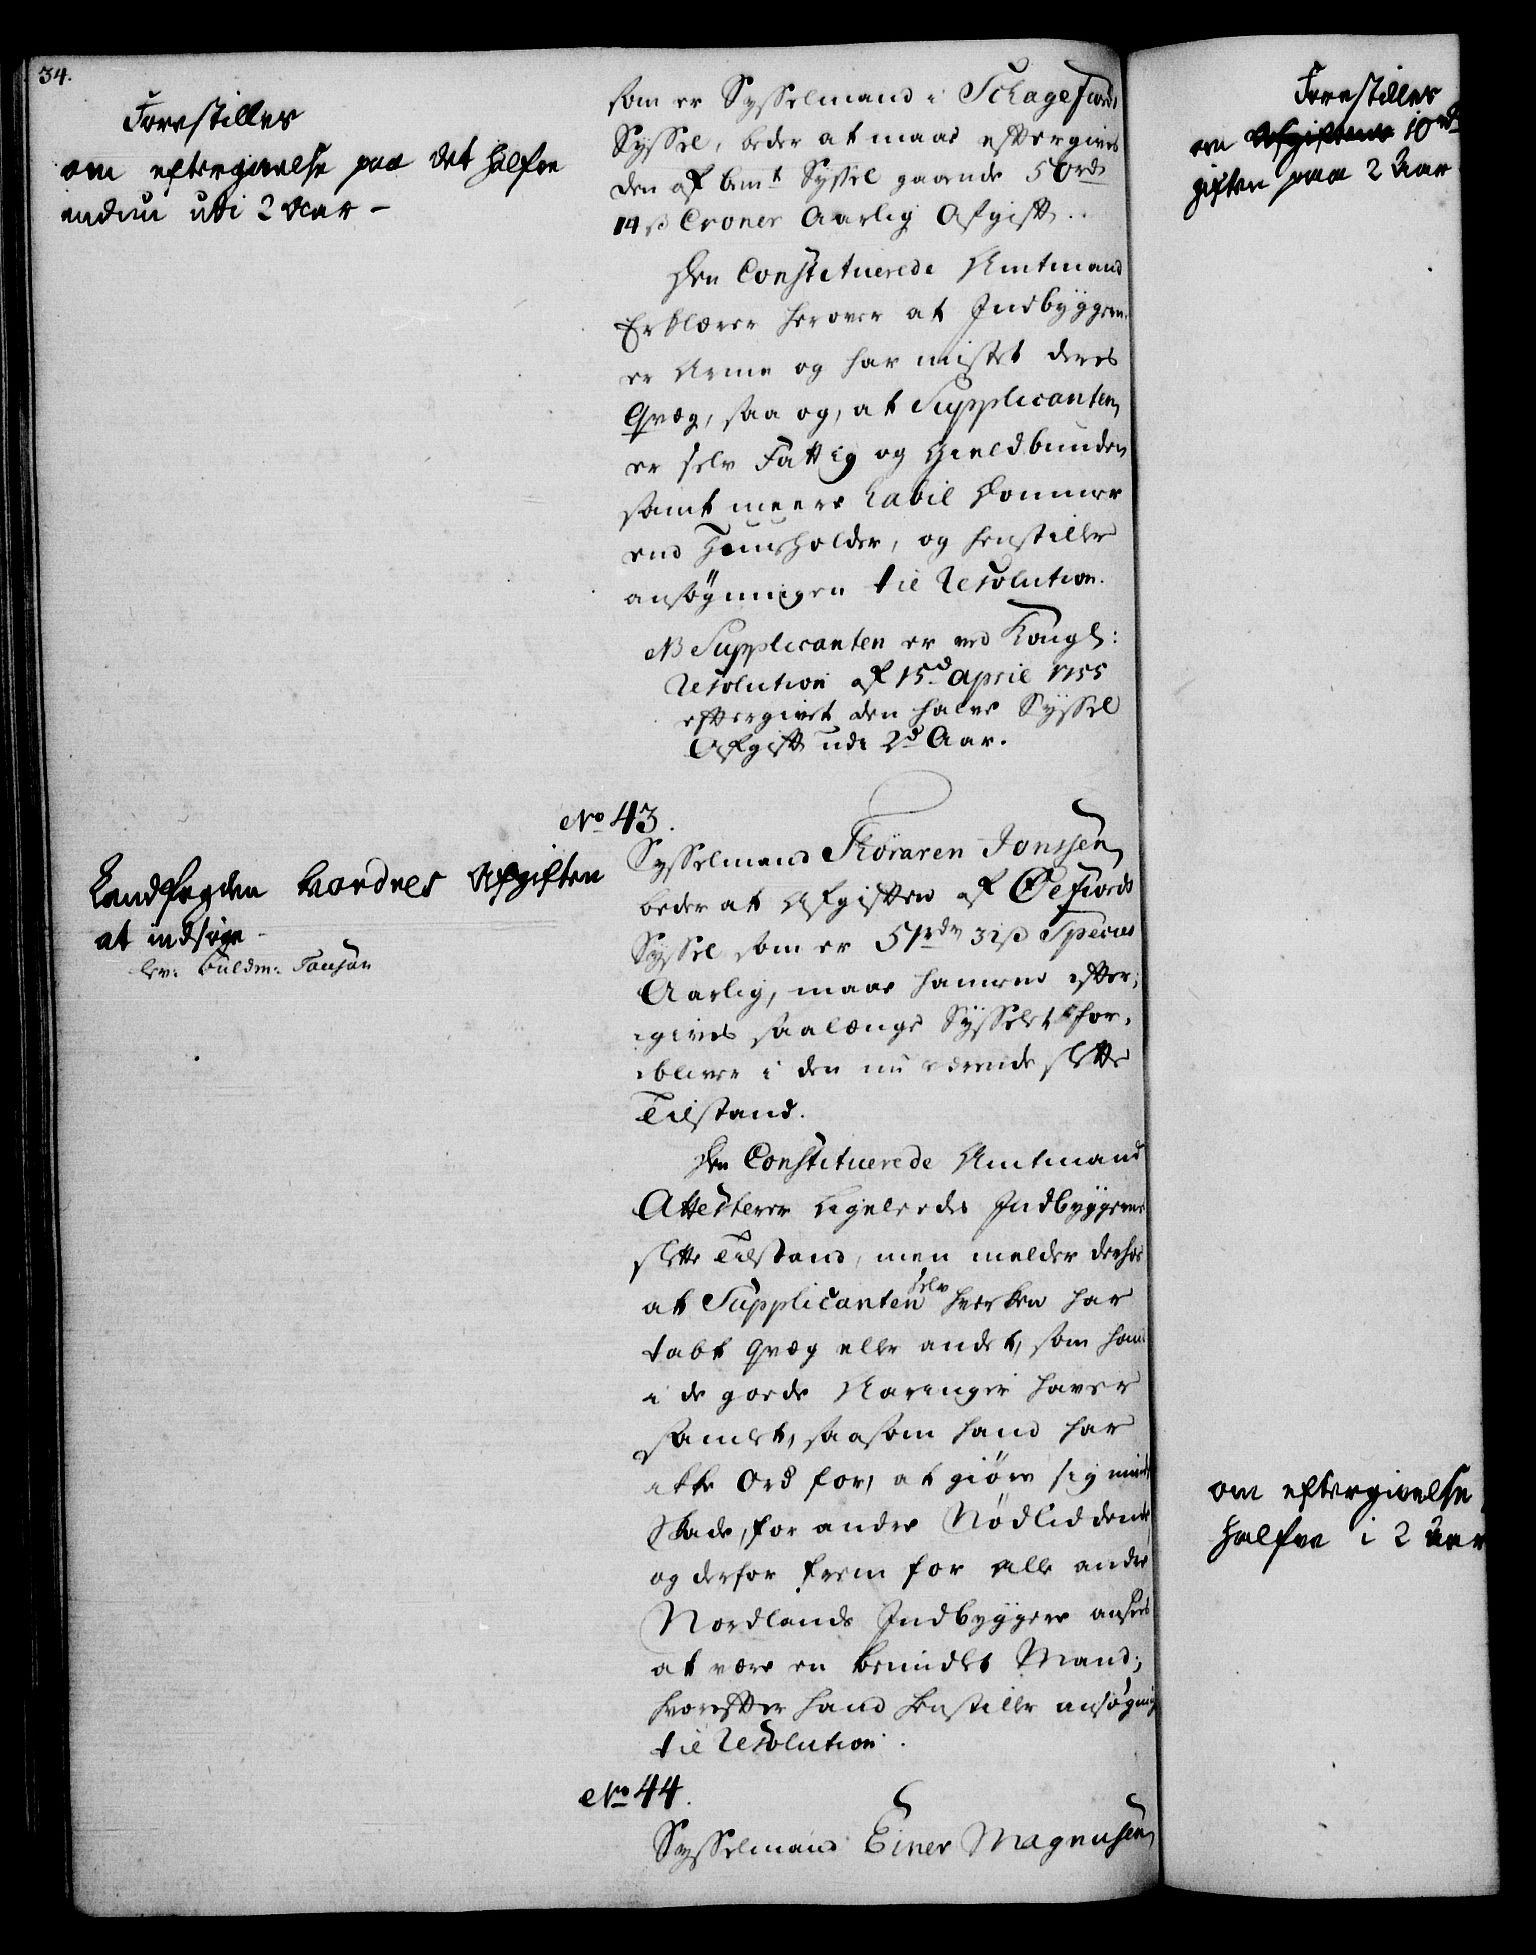 34.
Forestilles
om eftergivelse paa det halfve
endnu udi 2 Aar –
som er Sysselmand i Schagefiords
Syssel, beder at maae eftergives
den af bemt Syssel gaaende 50 rdr
14 ß Croner Aarlig Afgift.
Den Constituerede Amtmand
Erklærer herover at Indbyggern.
er Arme og har mistet deres
Qvæg, saa og, at Supplicanten
er selv Fattig og Gieldbunden
samt meere habil Dommer
end Huusholder, og henstiller
ansøgningen til Resolution.
NB Supplicanten er ved Kongl:
Resolution af 15d April 1755
eftergivet den halve Syssel
Afgift udi 2de Aar.
No 43.
Landfogden beordres Afgiften
at indsøge
lev: Guldm:
Sysselmand Thoraren Jonssen
beder at Afgiften af Øefiords
Syssel som er 51 rdr 31 ß Species
Aarlig, maae hannem efter-
gives saalænge Sysselet for-
bliver i den nu værende slette
Tilstand.
Den Constituerede Amtmand
Attesterer ligeledes Indbyggernes
slette Tilstand, men melder derhos
at Supplicanten selv hverken har
tabt Qvæg eller andet, som hand
i de goede Aaringer haver
samlet, saasom hand har
ikke Ord for, at giøre sig mindste
Skade, for andre Nødliddende,
og derfor frem for alle andre
Nordlands Indbyggere ansees
at være en bemidlet Mand;
hvorefter hand henstiller ansøgning
til Resolution.
No 44.
Sysselmand Einer Magnusen
Forestilles
om Afgiftens 10 rd
giften paa 2 Aar
om eftergivelse
halfve i 2 Aar